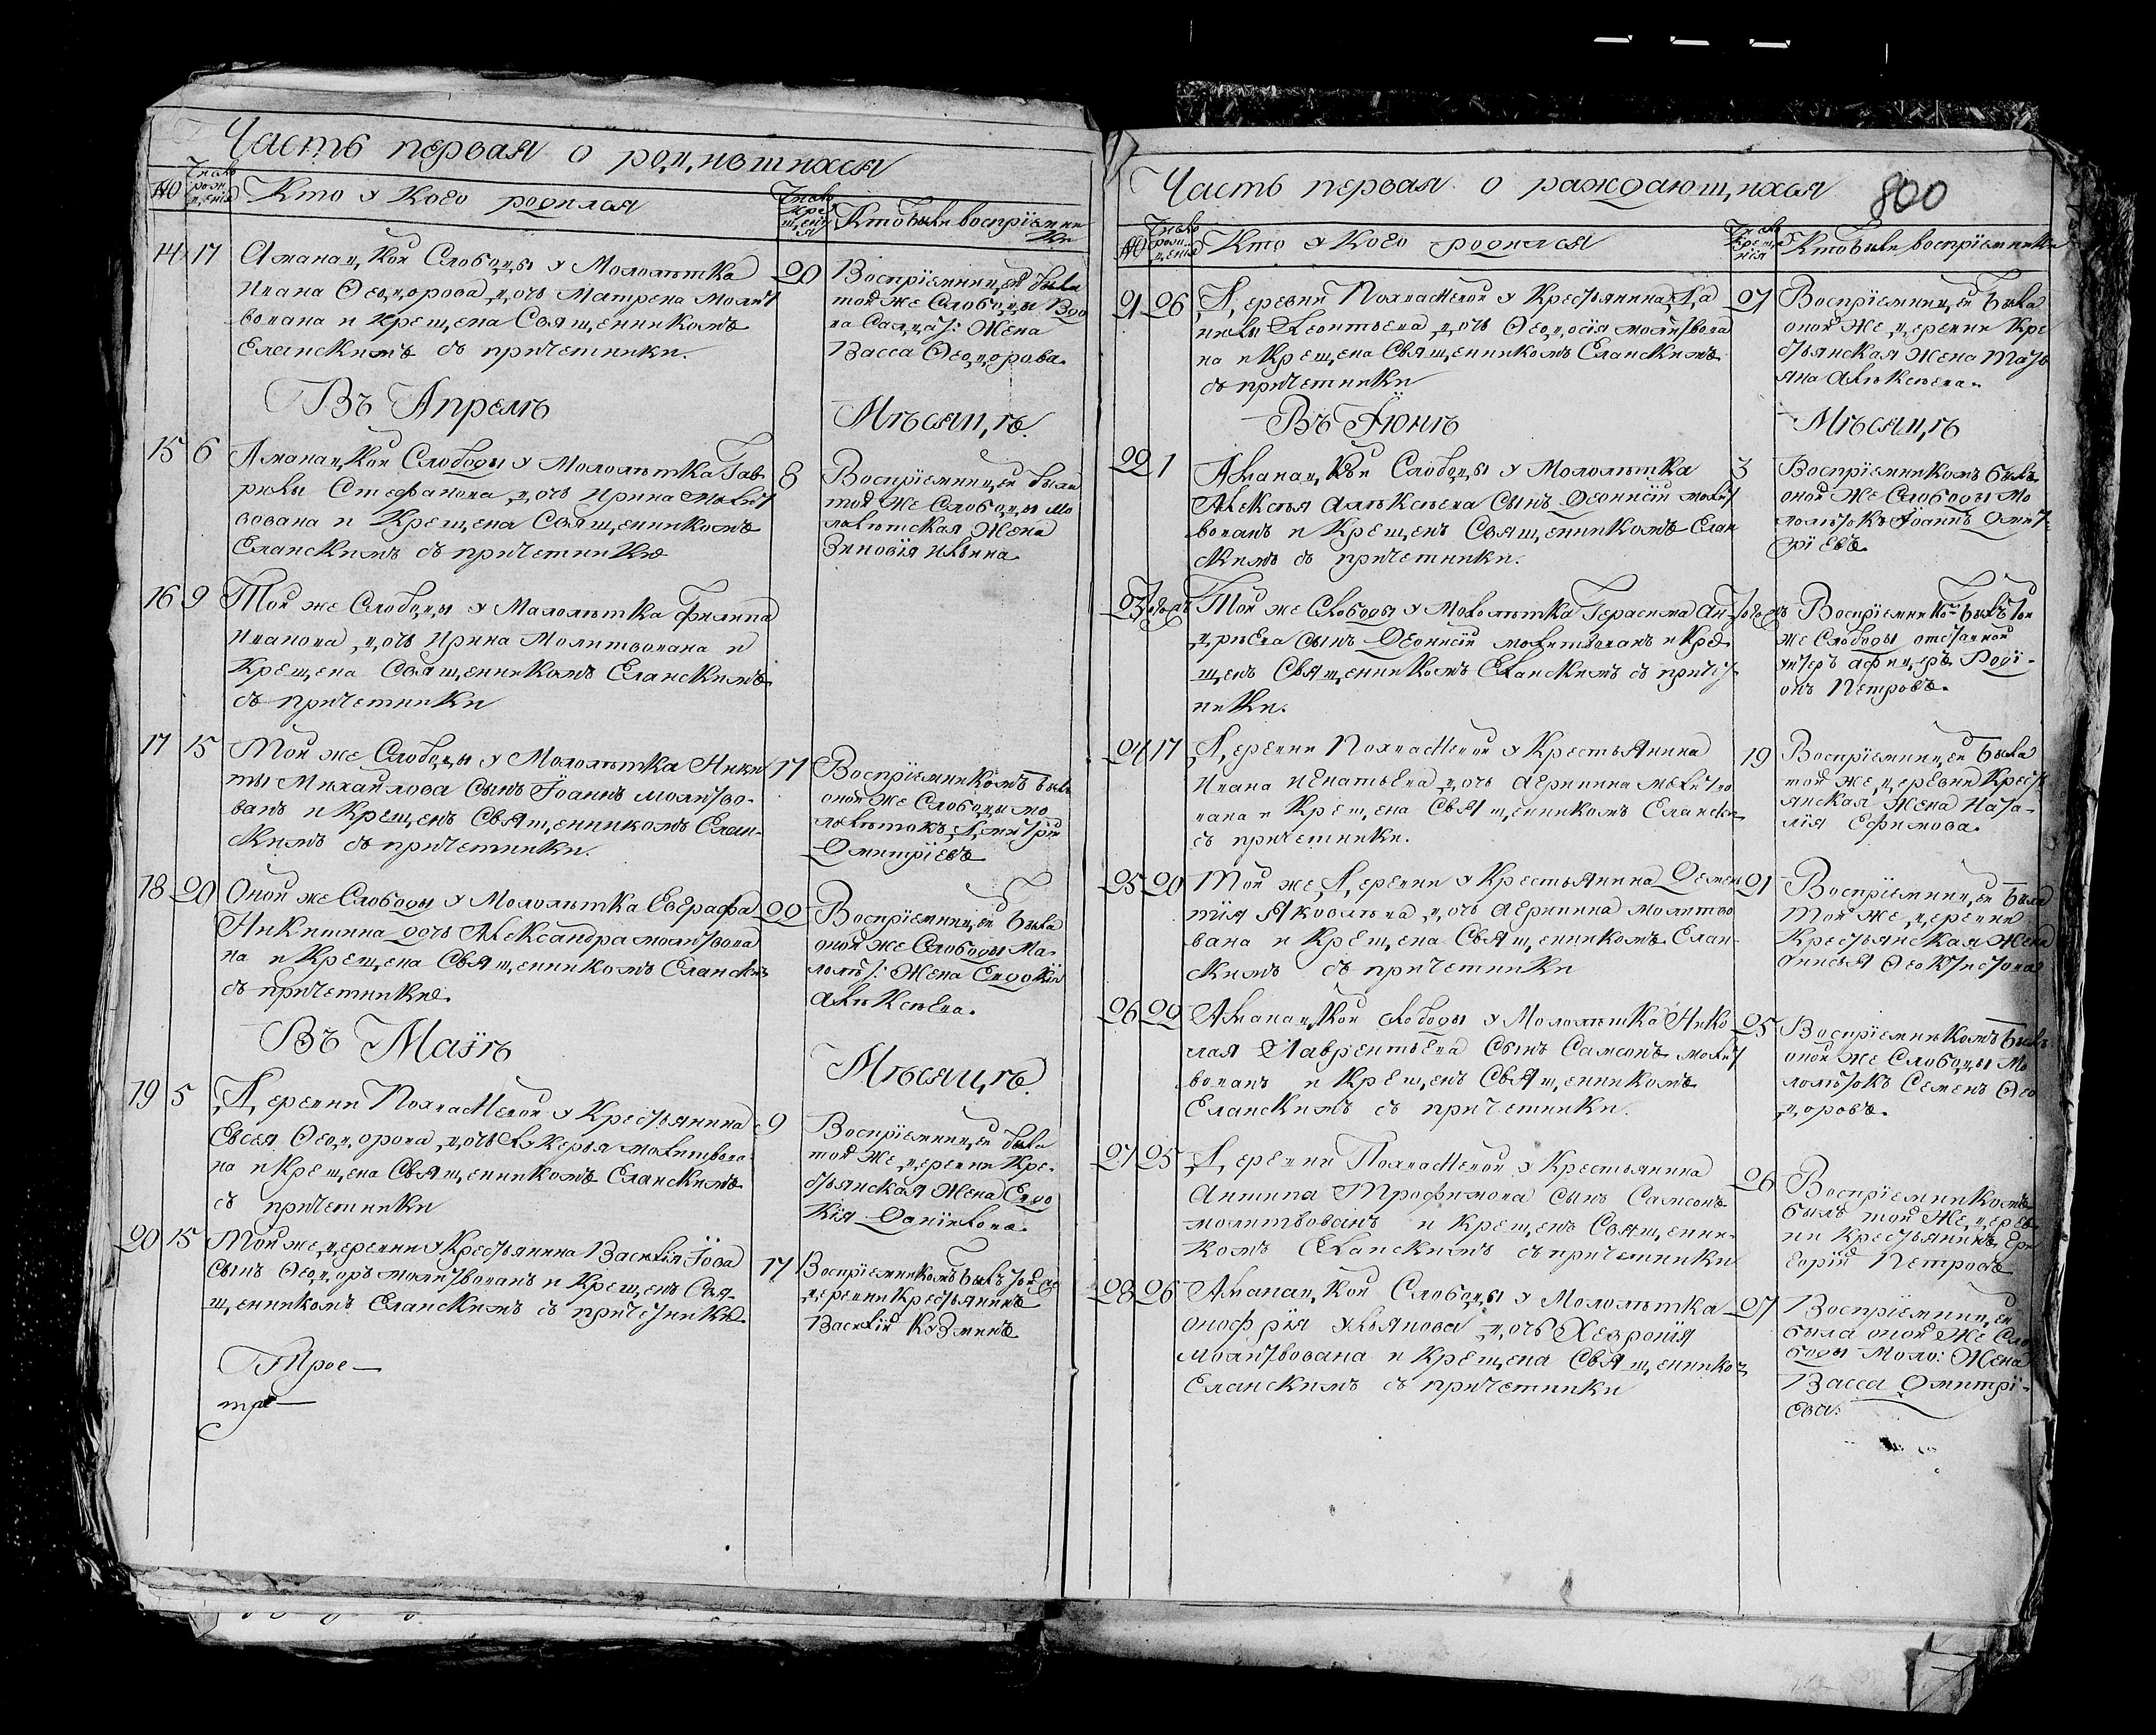 Часть первая о родившихся
№
Число рож дения
Кто у кого родился
Число кре щения
Кто были восприемни
ки
14 17
Аманацкой Слободы у Малолѣтка
Ивана Ѳеодорова дочь Матрена молит
вована и крещена Священникомъ
Еланскимъ съ причетники.
20
Восприемницей была
той же Слободы
Салдат: Жена
Васса Ѳеодорова.
Въ Апрелѣ
Мѣсяцѣ.
15 6
Аманацкой Слободы у Мололѣтка Гав
рилы Стефанова дочь Ирина молит
вована и Крещена Священникомъ
Еланскимъ съ причетники
8
Восприемницей была
той же Слободы мо
лолѣтская Жена
Зиновия Ильина.
16 9
Той же Слободы у Малолѣтка Филипа
Иванова дочь Ирина Молитвована и
Крещена Священникомъ Еланскимъ
съ причетники
17 15
Той же Слободы у Мололѣтка Ники
ты Михайлова сынъ Іоаннъ молитво-
ванъ и Крещенъ Священникомъ Елан-
скимъ съ причетники.
17
Восприемникомъ былъ
оной же Слободы мо
лолѣтокъ Дмитрiй
Дмитрiевъ
18 20
Оной же Слободы у Мололѣтка Евграфа
Никитина дочь Александра молитвова
на и Крещена Священникомъ Еланскимъ
съ причетники.
22
Восприемницей была
оной же Слободы Ма-
лолѣт: Жена Евдокiя
Алѣксѣева.
Въ Маiѣ
Мѣсяцѣ.
19 5
Деревни Похпастевой у Крестьянина
Евсея Ѳеодорова дочь Лукерья молитвова
на и Крещена Священникомъ Еланскимъ
съ причетники
9
Восприемницей была
той же деревни Кре-
стьянская Жена Евдо
кiя Данiилова.
20 15
Той же деревни у Крестьянина Василiя Іова
сынъ Ѳеодоръ молитвованъ и Крещенъ Свя-
щенникомъ Еланскимъ съ причетники.
17
Восприемникомъ былъ той же
деревни Крестьянинъ
Василiй Кузминъ
Трое
тр
Часть первая о раждающихся
800
№
Число рож дения
Кто у кого родился
Число креще нiя
Кто были восприемники
21 26
Деревни Похпастевой у Крестьянина Да
нилы Леонтьева дочь Ѳеодосiя молитвова
на и Крещена Священникомъ Еланскимъ
съ причетники
27
Восприемницей была
оной же деревни Кре
стьянская Жена Тать
яна Алѣксѣева.
Въ Іюнѣ
Мѣсяцѣ
22 1
Аманацкой Слободы у Мололѣтка
Алексѣя Алѣксѣева сынъ Деонисiй молит
вованъ и Крещенъ Священникомъ Елан
скимъ съ причетники.
3
Восприемникомъ былъ
оной же Слободы мо
лолѣтокъ Іоаннъ Дмит-
рiевъ
23
Той же Слободы у Мололѣтка Герасима Ан
дрѣева сынъ Деонисiй молитвованъ и Кре-
щенъ Священникомъ Еланскимъ съ причет-
ники.
Восприемник: былъ той
же Слободы отставной
унтеръ афицеръ Родi-
онъ Петровъ.
24 17
Деревни Похпастевой у Крестьянина
Ивана Игнатьева дочь Агрипина молитво
вана и Крещена Священникомъ Елански
съ причетники.
19
Восприемницей была
той же деревни Кресть
янская Жена Ната-
лiя Ефимова.
25 20
Той же Деревни у Крестьянина Демен
тiя Яковлѣва дочь Агрипина молитво
вана и Крещена Священникомъ Елан-
скимъ съ причетники
21
Восприемницей была
Той же деревни
Крестьянская Жена
Анисья Ѳеоктистова
26 22
Аманацкой слободы у Мололѣтка Нико
лая Лаврентьева сынъ Самсонъ молит
вованъ и Крещенъ Священникомъ
Еланскимъ съ причетники.
25
Восприемникомъ былъ
оной же Слободы Мо
лолѣтокъ Семенъ Ѳео
доровъ.
27 25
Деревни Похпастевой у Крестьянина
Антипа Трофимова сынъ Самсонъ
молитвованъ и Крещенъ Священни-
комъ Еланскимъ съ причетники
26
Восприемникомъ
былъ той же дерев
ни Крестьянинъ Гри
горiй Петровъ
28 26
Аманацкой Слободы у Мололѣтка
Онофрiя Ульянова дочь Хеврония
молитвована и Крещена Священнико
Еланскимъ съ причетники
27
Восприемницей
была оной же Сло
боды Моло: Жена
Васса Дмитрi-
ева: